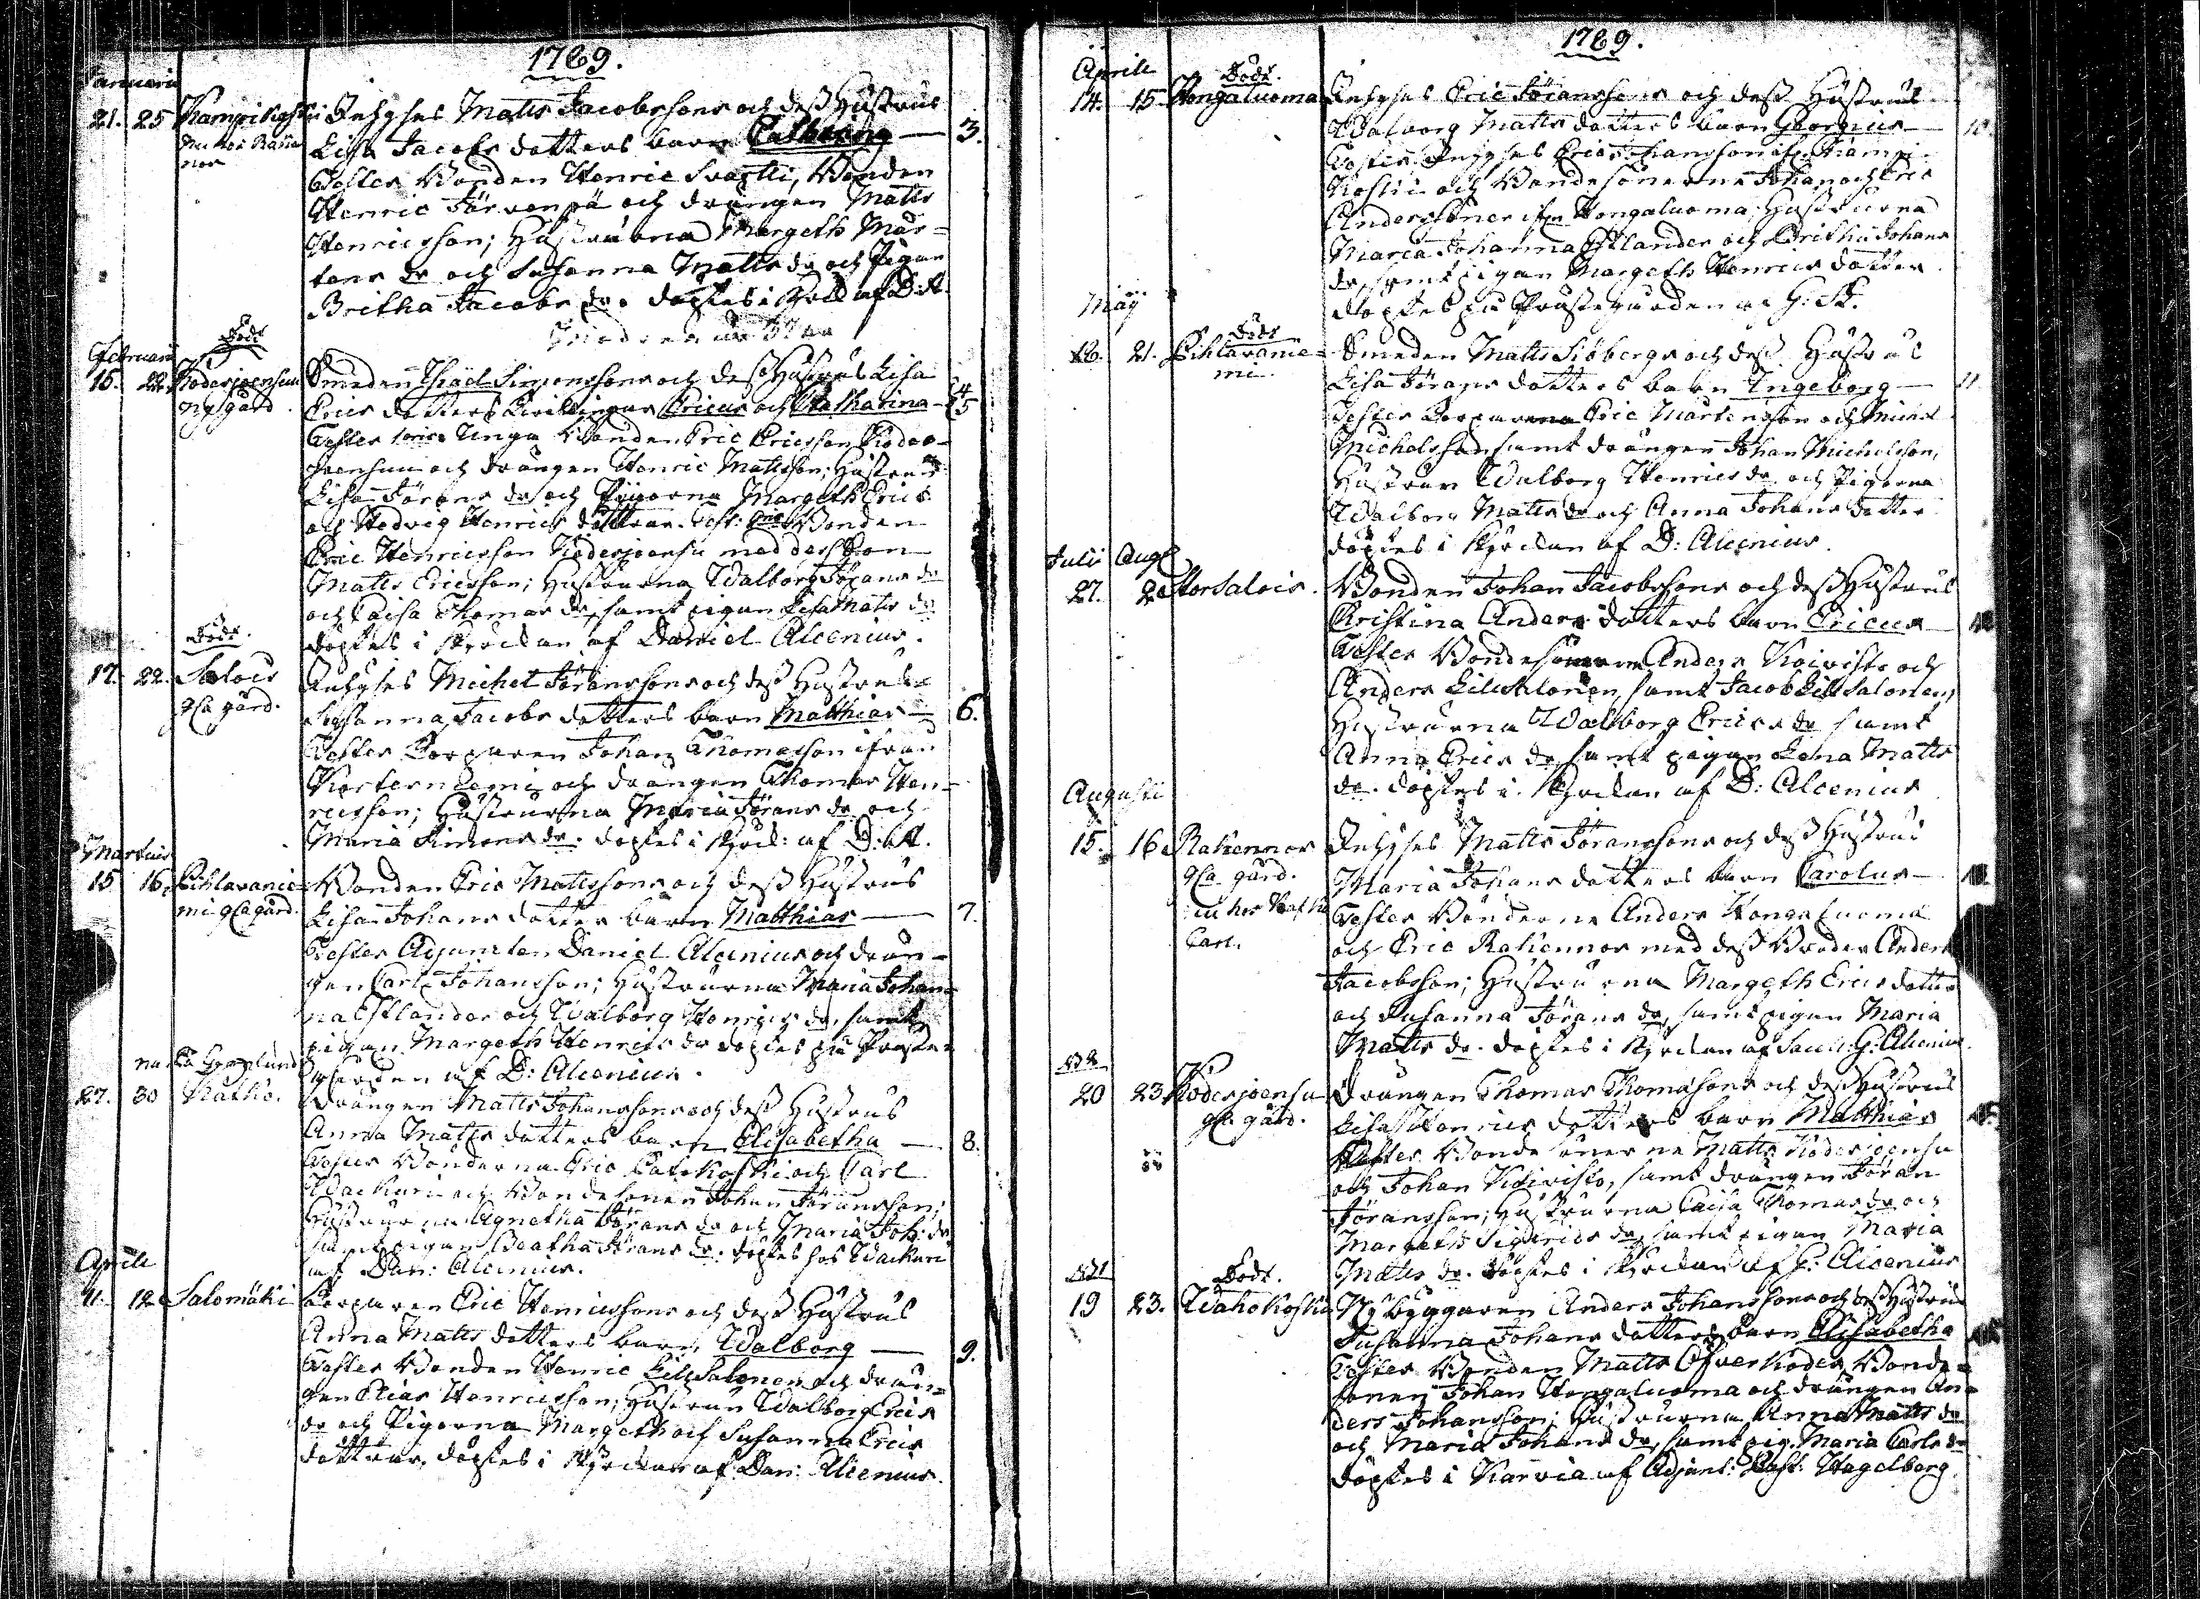 1789.
Januarii
21. 25 Kampikoski Inhyses Matts Jacobssons och dess Hustrus
Lisa Jacobs dotters barn Catharina — 3.
Testes Bonden Henric Svartti, Bonden
Henric Järvenpä och drängen Matts
Henricsson; Hustrurna Margeth Mår-
tens dr och Susanna Matts dr och Pigan
Britha Jacobs dr. döptes i Kyrck: af D: A.
Februarii
Död
15. 22. Koderjoensuu Smeden Isracl Simonssons och dess Hustrus Lisa
nys gård Erics dotters Twillingar Ericus och Catharina 4 5
Testes Unga Bonden Eric Ericsson Koder-
joensuu och drängen Henric Mattsson; Hustrun
Lisa Jörans dr och Pigorna Margeth Erics
och Hedvig Henrics döttrar. Bonden
Eric Henricsson Koderjoensu med dess Son
Matts Ericsson; Hustrurna Walborg Jörans dr
och Caisa Thomas dr, samt pigan Lisa Matts dr
döptes i Kyrckan af Daniel Alcenius.
Död.
17. 22. Salois Inhyses Michel Jöranssons och dess Hustrus
gla gård. Susanna Jacobs dotters barn Matthias — 6.
Testes Torparen Johan Thomasson ifrån
och drängen Thomas Hen-
ricsson; Hustrurna Maria Jörans dr och
Maria Simons dr. döptes i Kyrck: af D: A.
Martius
15 16. Pihlavanie- Bonden Eric Mattssons och dess Hustrus
mi gla gård. Lisa Johans dotters barn Matthias — 7.
Testes Adjuncten Daniel Alcenius och drän-
gen Carl Johansson; Hustrurna Maria Johan-
na Estlander och Walborg Henrics dr, samt
pigan Margeth Henrics dr döptes på Präste-
gården af D: Alcenius.
27. 30 Katko. Drängen Matts Johanssons och dess Hustrus
Anna Matts dotters barn Elisabetha — 8.
Testes Bönderna Eric Patikoski och Carl
Wackuri och Bondesonen Johan Jöransson;
Hustrurna Agnetha Jörans dr och Maria Joh: dr
samt pigan Beatha Jörans dr. döptes hos Wackuri
af Dan: Alcenius.
Aprile
11. 12 Salomäki Torparen Eric Henricssons och dess Hustrus
Anna Matts dotters barn Walborg — 9.
Testes Bonden Henric Lillsalonen och drän-
gen Elias Henricsson; Hustrun Walborg Erics
dr och Pigorna Margeth och Susanna Erics
döttrar, döptes i Kyrckan af Dan: Alcenius.
1789.
Aprile
Död.
14. 15 Hongaluoma Inhyses Eric Jöranssons och dess Hustrus
Walborg Matts dotters barn Georgius — 10.
Testes Inhyses Eric Hansson ifrn Kampi-
koski och Bondesönerne Johan och Eric
Anderssöner ifrn Hongaluoma; Hustrurna
Maria Johanna Estlander och Britha Johans
dr, samt pigan Margeth Henrics dotter
döptes på Prästegården af G: A.
May
Död
18. 21. Pihlavanie- Smeden Matts Siöbergs och dess Hustrus
mi. Lisa Jörans dotters barn Ingeborg — 11
Testes Torparena Eric Mårtensson och Michel
Michelsson samt drängen Johan Michelsson;
Hustrun Walborg Henrics dr, och Pigorna
Walborg Matts dr och Anna Johans dotter
döptes i Kyrckan af D: Alcenius.
Julii Aug
27. 2 Storsalois. Bonden Johan Jacobssons och dess Hustrus
Christina Anders dotters barn Ericus —
Testes Bondesönerne Anders Koivisto och
Anders Lillsalonen, samt Jacob Lillsalonen,
Hustrurna Walborg Erics dr samt
Anna Erics dr, samt pigan Lena Matts
dr. döptes i Kyrckan af D: Alcenius
Augusti
15. 16 Rahennos Inhyses Matts Jöranssons och dess Hustrus
gla gård. Maria Johans dotters barn Carolus —
Testes Bönderne Anders Hongaluoma
Carl. och Eric Rahennos med dess Broder Anders
Jacobsson; Hustrurna Margeth Erics dotter
och Susanna Jörans dr, samt pigan Maria
Matts dr. döptes i Kyrckan af Sacell: G: Alcenius
20 23. Koderjoensu Drängen Thomas Thomassons och dess Hustrus
gla gård. Lisa Henrics dotters barn Matthias
Testes Bondesönerne Matts Koderjoensu
och Johan Koivisto, samt drängen Jöran
Jöransson; Hustrurna Caisa Thomas dr och
Margeth Sigfrids dr, samt pigan Maria
Matts dr. döptes i Kyrckan af G: Alcenius
Död.
19 23. Wahokoski Nybyggaren Anders Johanssons och dess Hustrus
Susanna Johans dotters barn Elisabetha
Testes Bonden Matts Öfverkoder, Bonde-
sonen Johan Hongaluoma och drängen An-
ders Johansson; Hustrurna Anna Matts dr
och Maria Johans dr, samt pig. Maria Carls dr
döptes i Karvia af Adjunct: Past: Hagelberg